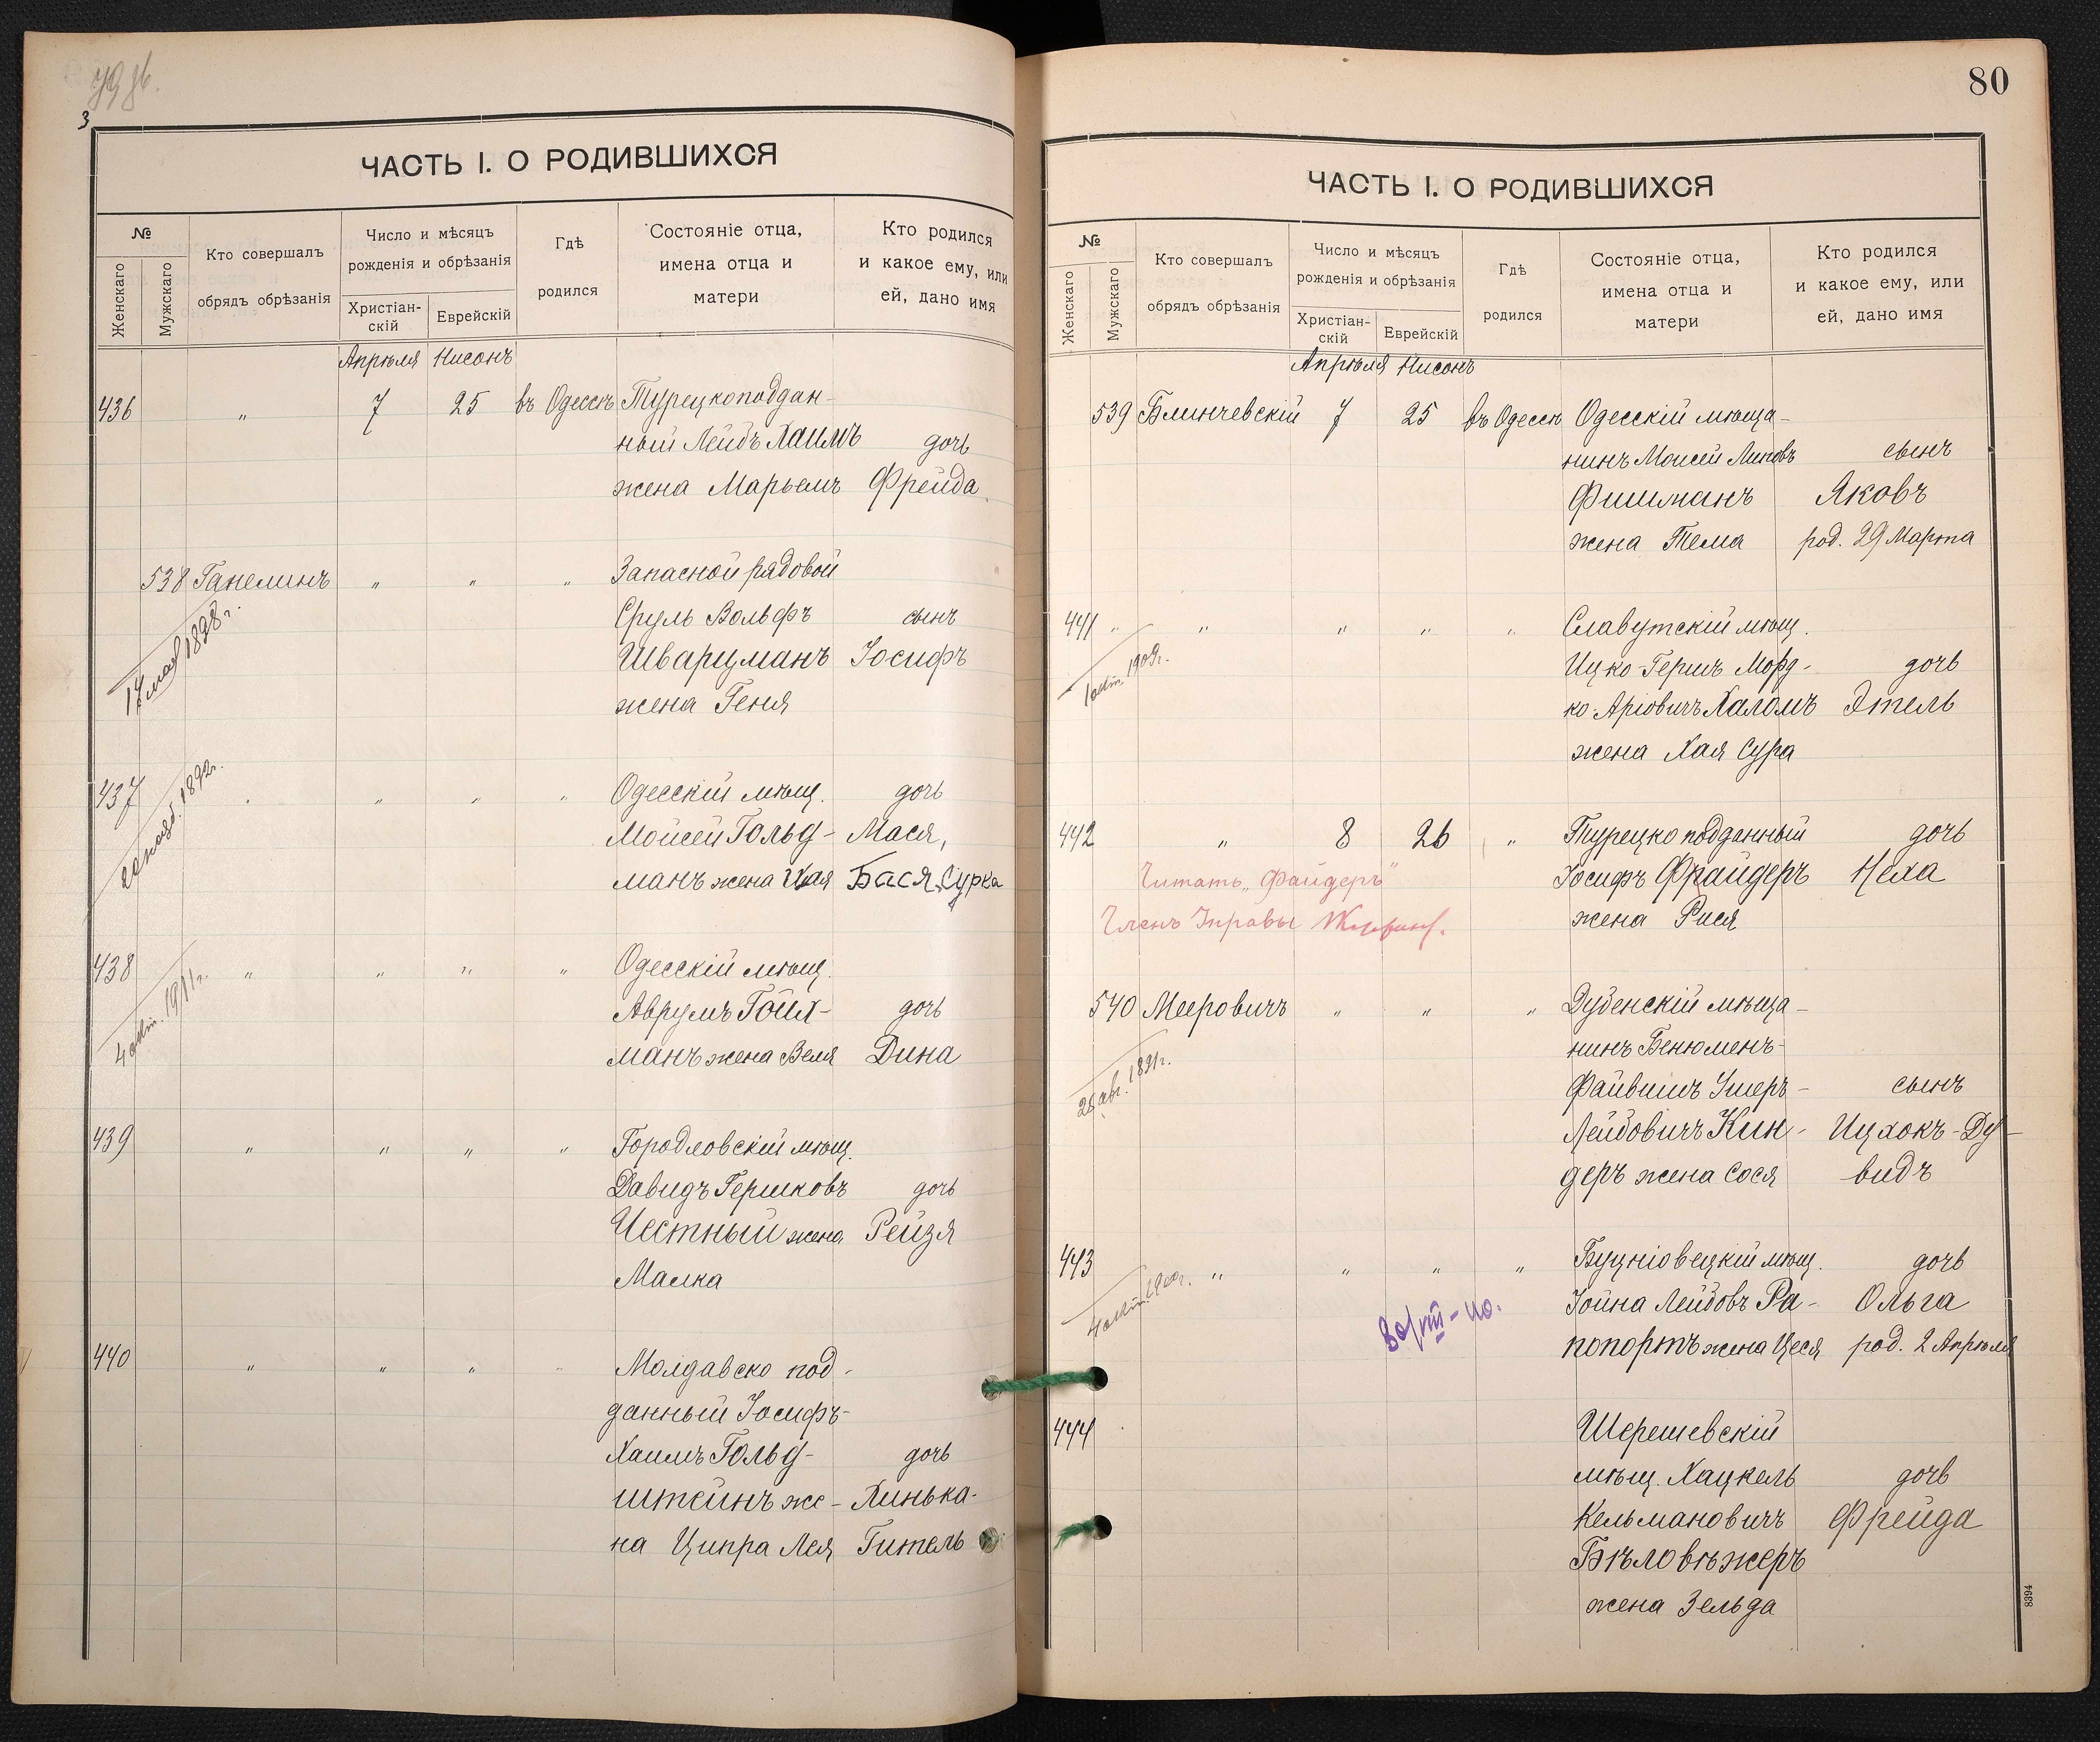 3
ЧАСТЬ I. О РОДИВШИХСЯ
№
Женскаго
Мужскаго
Кто совершалъ
обрядъ обрѣзанія
Число и мѣсяцъ
рожденія и обрѣзанія
Христіан-
скій
Еврейскій
Гдѣ
родился
Состояніе отца,
имена отца и
матери
Кто родился
и какое ему, или
ей, дано имя
Апрѣля Нисонъ
436 " 7 25 въ Одессѣ Турецкоподдан-
ный Лейбъ Хаимъ дочь
жена Марьемъ Фрейда
538 Ганелинъ " " " Запасной рядовой
Сруль Вольфъ сынъ
Шварцманъ Іосифъ
жена Геня
17 мая 1898 г.
437 " " " " Одесскій мѣщ. дочь
Мойсей Гольд- Мася,
манъ жена Хая Бася, Сурка
1892 г.
438 " " " " Одесскій мѣщ.
Аврумъ Гойх- дочь
манъ жена Веля Дина
4 окт. 1911 г.
439 " " " " Городловскій мѣщ.
Давидъ Гершковъ дочь
Честный жена Рейзя
Малка
440 " " " " Молдавско под-
данный Іосифъ-
Хаимъ Гольд- дочь
штейнъ же- Хинька-
на Ципра Лея Гитель
80
ЧАСТЬ I. О РОДИВШИХСЯ
№
Женскаго
Мужскаго
Кто совершалъ
обрядъ обрѣзанія
Число и мѣсяцъ
рожденія и обрѣзанія
Христіан-
скій
Еврейскій
Гдѣ
родился
Состояніе отца,
имена отца и
матери
Кто родился
и какое ему, или
ей, дано имя
Апрѣля Нисонъ
539 Блинчевскій 7 25 въ Одессѣ Одесскій мѣща-
нинъ Моисей Линовъ сынъ
Фишманъ Яковъ
жена Тема род. 29 Марта
441 " " " " " Славутскій мѣщ.
Ицко-Гершъ Морд- дочь
ко-Аріовичъ Халомъ Этель
жена Хая Сура
1 окт. 1909 г.
442 " 8 26 " Турецко подданный дочь
Читать „Файдеръ" Іосифъ Фрайдеръ Неха
Членъ Управы жена Рися
540 Мееровичъ " " " Дубенскій мѣща-
нинъ Бенюменъ-
Файвишъ Ушеръ- сынъ
Лейбовичъ Кин- Ицхокъ-Ду-
деръ жена Сося видъ
авг. 1891 г.
443 " " " " Буцніовецкій мѣщ. дочь
Іойна Лейбовъ Ра- Ольга
попортъ жена Цеся род. 2 Апрѣля
444 Шерешевскій
мѣщ. Хацкель дочь
Кельмановичъ Фрейда
Бѣловѣжеръ
жена Зельда
8394